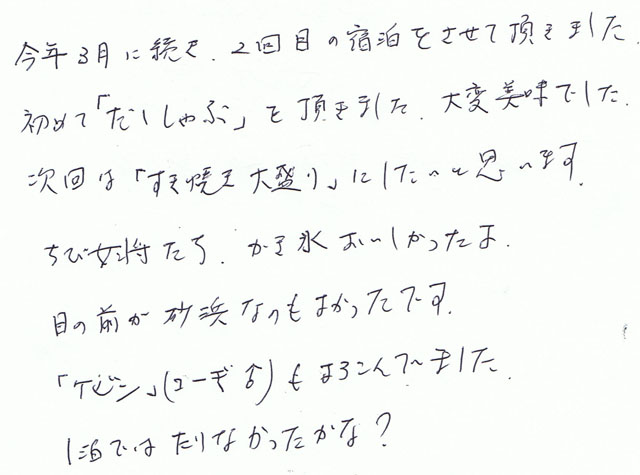 今年3月に続き、2回目の宿泊をさせて頂きました。
初めて「だししゃぶ」を頂きました。大変美味でした。
次回は「すき焼き大盛り」にしたいと思います。
ちび女将たち、かき氷おいしかったよ。
目の前が砂浜なのもよかったです。
「ケビン」(コーギー♂)もよろこんでました。
1泊ではたりなかったかな?